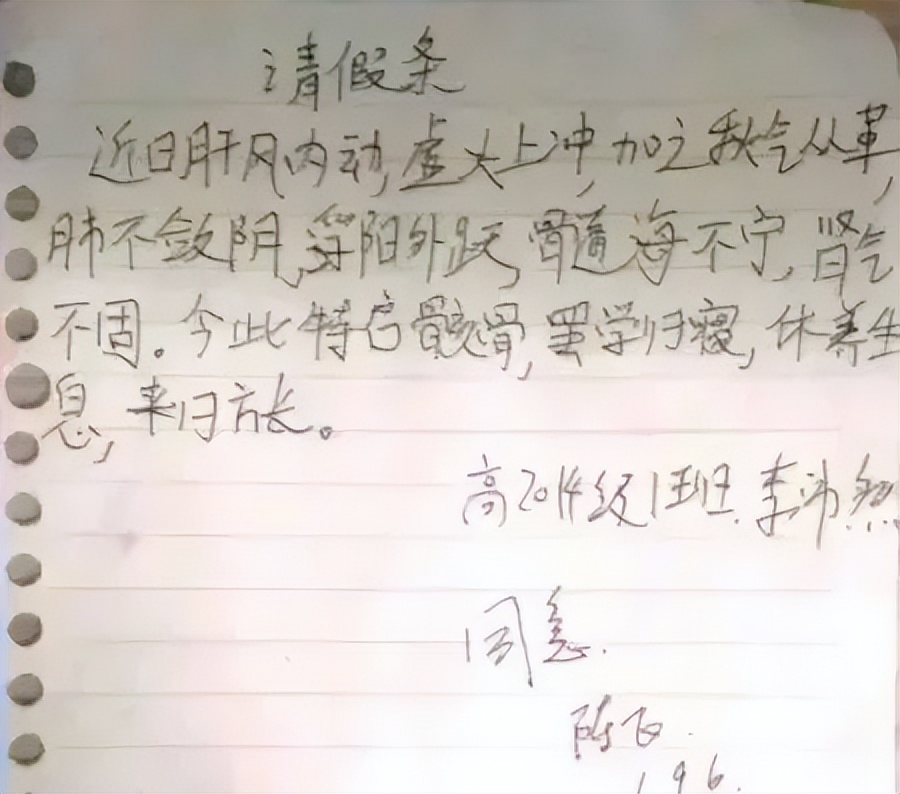 请假条
近日肝风内动,虚火上冲,加之秋气从革,
肺不敛阴,浮阳外跃,髓海不宁,肾气
不固。今此特启骸骨,罢学归寝,休养生
息,来日方长。
高2014级1班.李沛然
同意.
陈飞.
196.